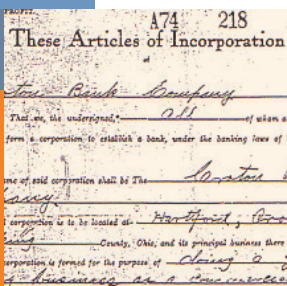 PROFIT.
A74 218
These Articles of Incorporation
of
Bank Company
That we, the undersigned, all of whom a
form a corporation to establish a bank, under the banking laws of
me of said corporation shall be The Croton
corporation is to be located at Hartford,
County, Ohio, and its principal business there
corporation is formed for the purpose of doing a
business as a commercial